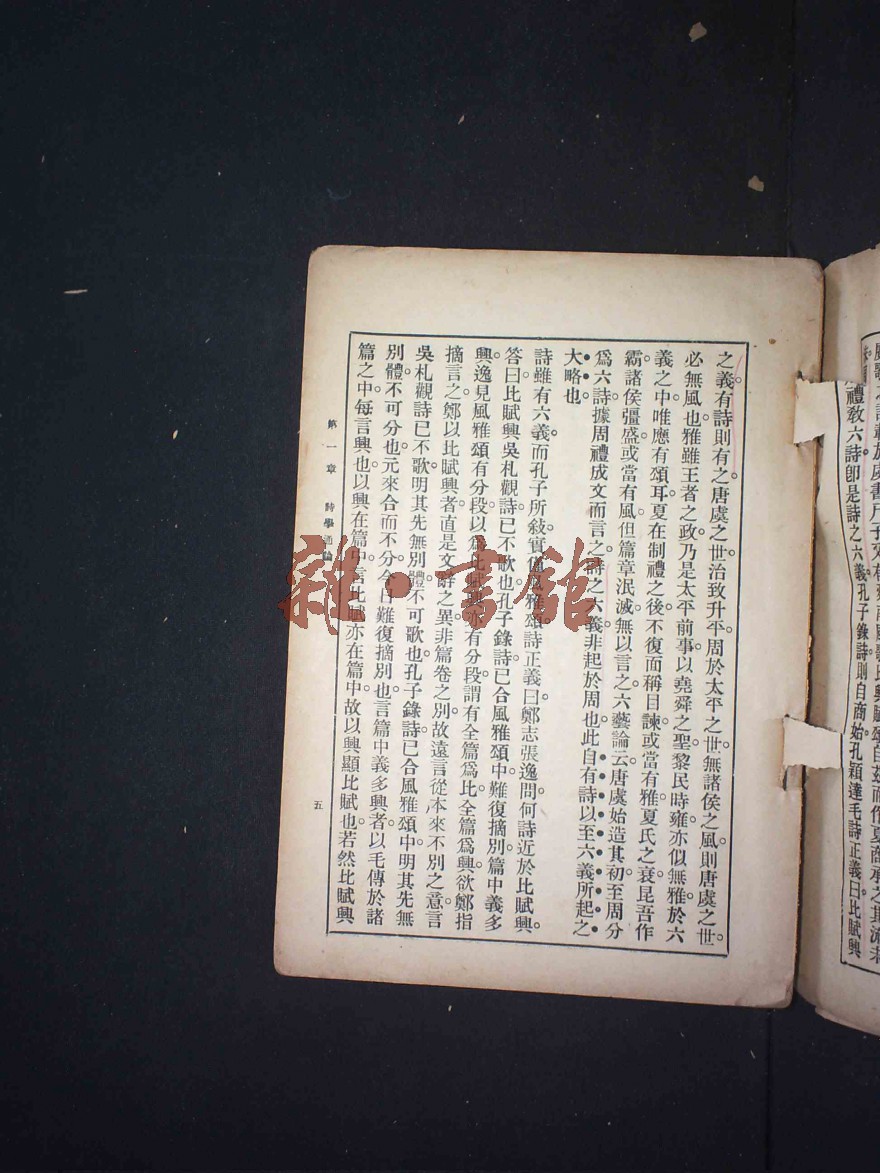 禮教六詩卽是詩之六義孔子錄詩則自商始孔穎達毛詩正義曰比賦興
之義有詩則有之唐虞之世治致升平周於太平之世無諸侯之風則唐虞之世
必無風也雅雖王者之政乃是太平前事以堯舜之聖黎民時雍亦似無雅於六
義之中唯應有頌耳夏在制禮之後不復面稱目諫或當有雅夏氏之衰昆吾作
霸諸侯彊盛或當有風但篇章泯滅無以言之六藝論云唐虞始造其初至周分
爲六詩據周禮成文而言之詩之六義非起於周也此自有詩以至六義所起之
大略也
詩雖有六義而孔子所敍實僅風雅頌詩正義曰鄭志張逸問何詩近於比賦興
答曰比賦興吳札觀詩已不歌也孔子錄詩已合風雅頌中難復摘別篇中義多
興逸見風雅頌有分段以爲比賦興亦有分段謂有全篇爲比全篇爲興欲鄭指
摘言之鄭以比賦興者直是文辭之異非篇卷之別故遠言從本來不別之意言
吳札觀詩已不歌明其先無別體不可歌也孔子錄詩已合風雅頌中明其先無
別體不可分也元來合而不分今日難復摘別也言篇中義多興者以毛傳於諸
篇之中每言興也以興在篇中言比賦亦在篇中故以興顯比賦也若然比賦興
第一章 詩學通論
五
雜·書館